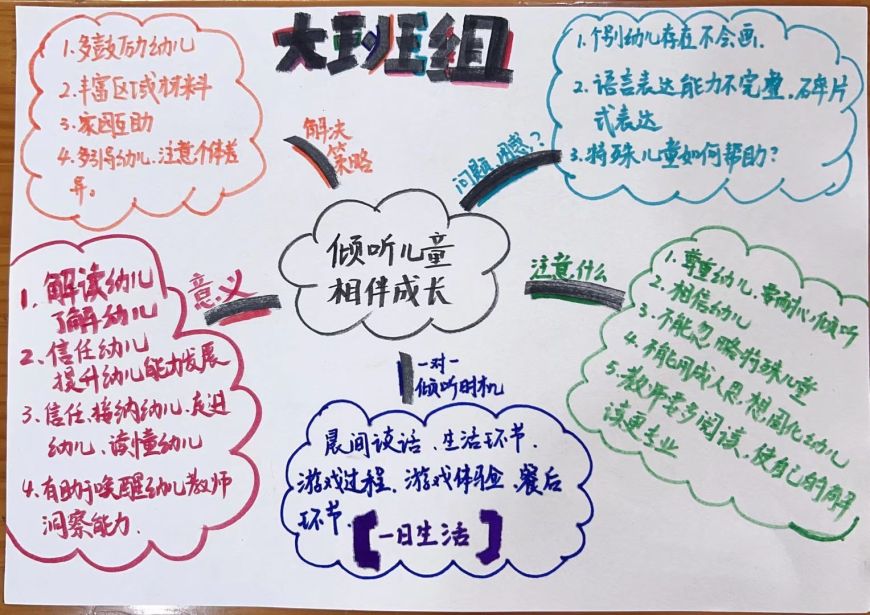 大班组
1.多鼓励幼儿
2.丰富区域材料
3.家园互助
4.多引导幼儿、注意个体差
异。
解决
策略
问题、困惑?
1.个别幼儿存在不会画.
2.语言表达能力不完整、碎片
式表达
3.特殊儿童如何帮助?
倾听儿童
相伴成长
意义
1、解读幼儿
了解幼儿
2、信任幼儿
提升幼儿能力发展
3、信任、接纳幼儿、走进
幼儿、读懂幼儿
4、有助于唤醒幼儿教师
洞察能力.
注意什么
1.尊重幼儿、要耐心倾听
2.相信幼儿
3.不能忽略特殊儿童
4.不能用成人思想固化幼儿
5.教师要多阅读、使自己的解
读更专业
一对一
倾听时机
晨间谈话、生活环节、
游戏过程、游戏体验、餐后
环节.
【一日生活】